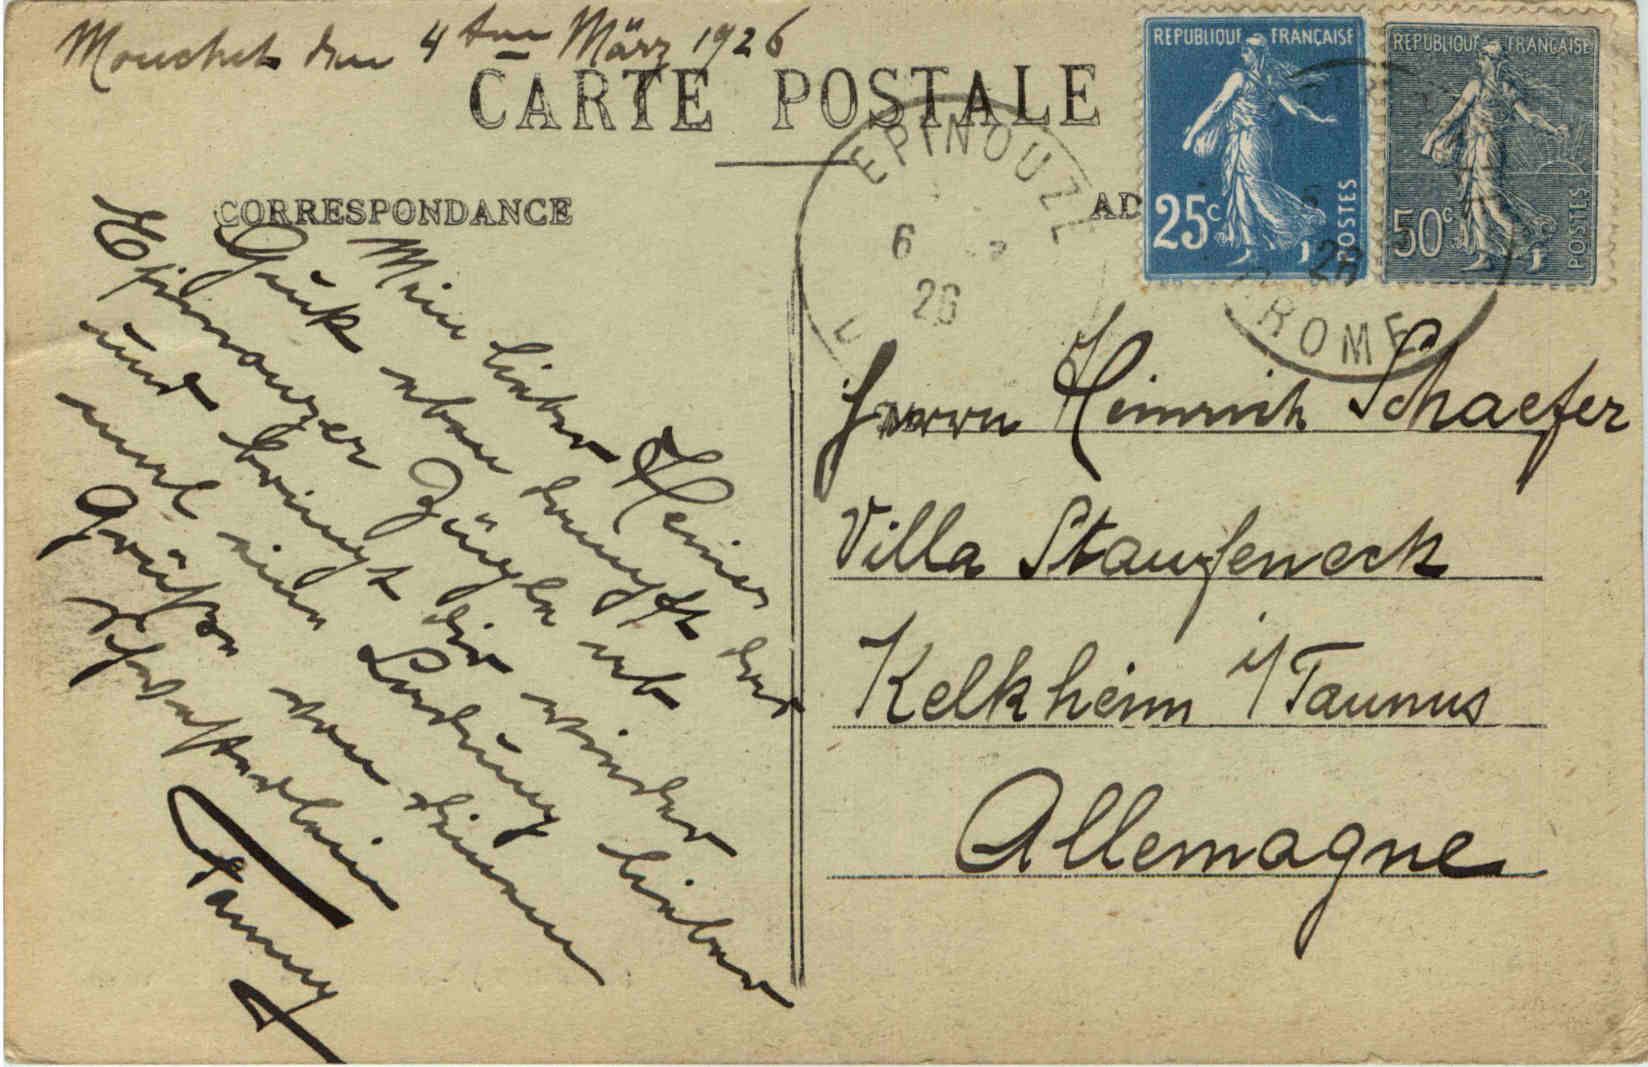 Mouchet den 4ten März 1926
CARTE POSTALE
CORRESPONDANCE
AD
REPUBLIQUE FRANÇAISE
25c
POSTES
REPUBLIQUE FRANÇAISE
50c
POSTES
EPINOUZE
6
26
26
DROME
Mein lieber Heiner
Guck eben dampft das
Epinouzer Zügle ab
und bringt dir wieder
mal eine Ladung lieber
Grüße von deinem
Schwesterlein
Fanny
Herrn Heinrich Schaefer
Villa Staufeneck
Kelkheim i/Taunus
Allemagne